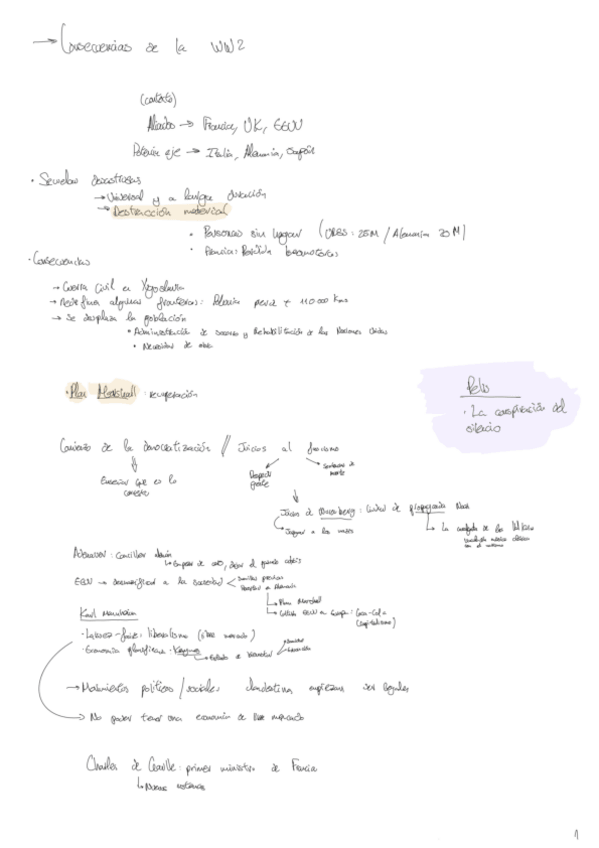 → Consecuencias de la WW2
(contexto)
Aliados → Francia, UK, EEUU
Potencias eje → Italia, Alemania, Japón
· Secuelas desastrosas
→ Universal y a larga duración
→ Destrucción material
• Personas sin hogar (URSS: 25M / Alemania 20M)
• Francia: Perdida locomotoras
· Consecuencias
→ Guerra Civil en Yugoslavia
→ Redefinen algunas fronteras: Polonia perdió + 110 000 Km2
→ Se desplaza la población
• Administración de socorro y Rehabilitación de las Naciones Unidas
• Necesidad de
· Plan Marshall: recuperación
Pelis
· La conspiración del silencio
Comienzo de la democratización // Juicios al fascismo
Enseñar que es lo correcto
gente
Sentencias de muerte
Juicio de Nuremberg: ciudad de propaganda Nazi
Juzgar a los nazis
La cabalgata de las
Adenauer: Canciller alemán
EEUU → desnazificar a la sociedad
Plan Marshall
EEUU en Europa: Coca-Cola (capitalismo)
Karl Mannheim
· Laissez-faire: liberalismo (libre mercado)
· Economía planificada · Keynes
Estado de bienestar
→ Movimientos políticos / sociales clandestina empiezan ser legales
→ No poder tener una economía de libre mercado
Charles de Gaulle: primer ministro de Francia
1